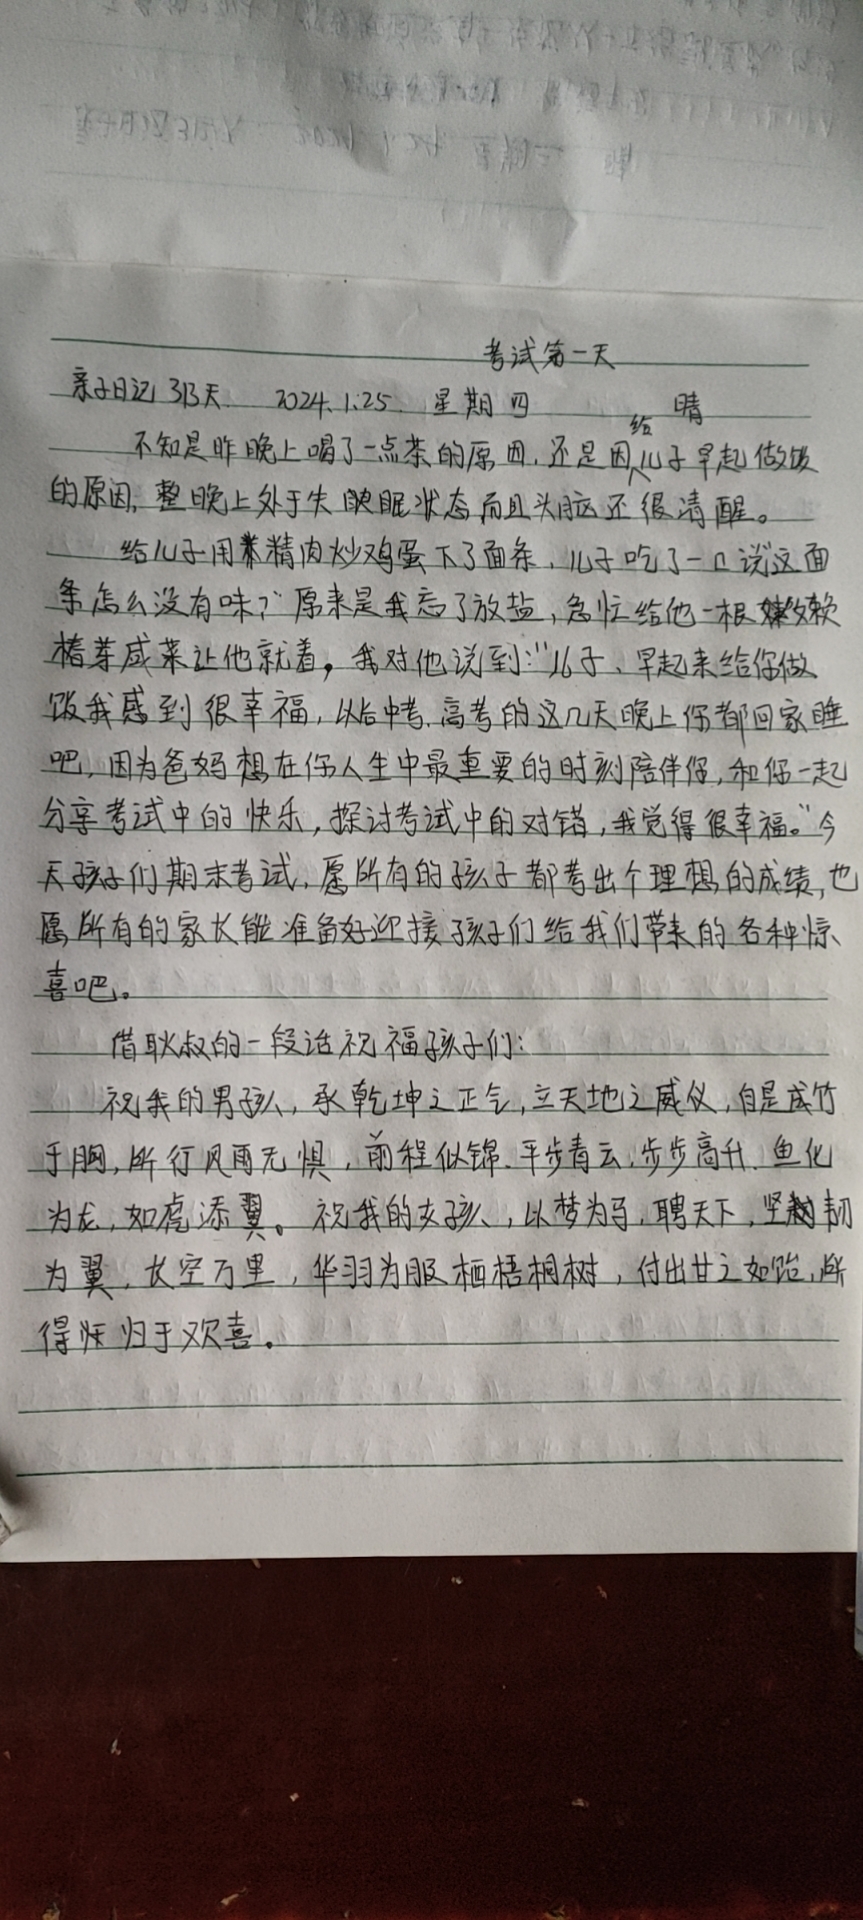 考试第一天
亲子日记 313天 2024.1.25. 星期四 晴
不知是昨晚上喝了一点茶的原因,还是因给儿子早起做饭
的原因,整晚上处于失眠状态而且头脑还很清醒。
给儿子用精肉炒鸡蛋下了面条,儿子吃了一口说"这面
条怎么没有味?"原来是我忘了放盐,急忙给他一根嫩
椿芽咸菜让他就着,我对他说到:"儿子、早起来给你做
饭我感到很幸福,以后中考.高考的这几天晚上你都回家睡
吧,因为爸妈想在你人生中最重要的时刻陪伴你,和你一起
分享考试中的快乐,探讨考试中的对错,我觉得很幸福。"今
天孩子们期末考试,愿所有的孩子都考出个理想的成绩,也
愿所有的家长能准备好迎接孩子们给我们带来的各种惊
喜吧。
借耿叔的一段话祝福孩子们:
祝我的男孩,承乾坤之正气,立天地之威仪,自是成竹
于胸,所行风雨无惧,前程似锦.平步青云,步步高升.鱼化
为龙,如虎添翼。祝我的女孩,以梦为马,聘天下,坚韧
为翼,长空万里,华羽为服栖梧桐树,付出甘之如饴,所
得归于欢喜。